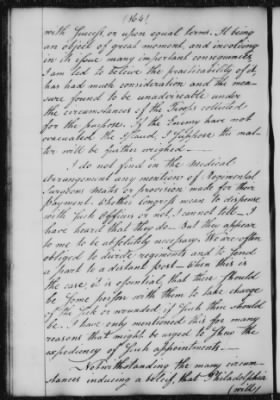 (164)
with success, or upon equal terms. It being
an object of great moment, and involving
in its issue many important consequences,
I am led to believe the practicability of it,
has had much consideration and the mea-
sure found to be unadviseable under
the circumstances of the Troops collected
for the purpose. If the Enemy have not
evacuated the Island, I suppose the mat-
ter will be further weighed—
I do not find in the Medical
Arrangement any mention of Regimental
Surgeons Mates or provision made for their
payment. Whether Congress mean to dispense
with such Officers or not, I cannot tell—I
have heard that they do—But they appear
to me to be absolutely necessary. We are often
obliged to divide regiments and to send
a part to a distant post—When this is
the case, it is essential, that there should
be some person with them to take charge
of the sick or wounded if such there should
be. I have only mentioned this for many
reasons that might be urged to shew the
expediency of such appointments.—
Notwithstanding the many circum-
stances inducing a belief, that Philadelphia
(will)